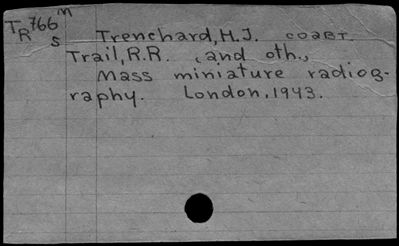 TR766 m
s
Trenchard, H.J. соавт.
Trail, R.R. (and oth.,
Mass miniature radiog-
raphy. London, 1943.